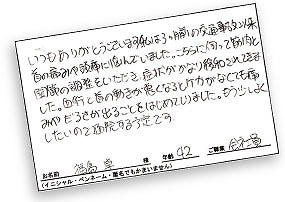 いつもありがとうございます。私は3ヶ月前の交通事故以来
首の痛みや頭痛に悩んでいました。こちらに伺って筋肉と
骨盤の調整をいただき、症状がかなり緩和されてきま
した。血行と首の動きが良くなるとケガがなくても痛
みやだるさが出ることをはじめてしりました。もう少しよく
したいので通院する予定です。
お名前 様 年齢 42 ご職業 会社員
(イニシャル・ペンネーム・匿名でもかまいません)